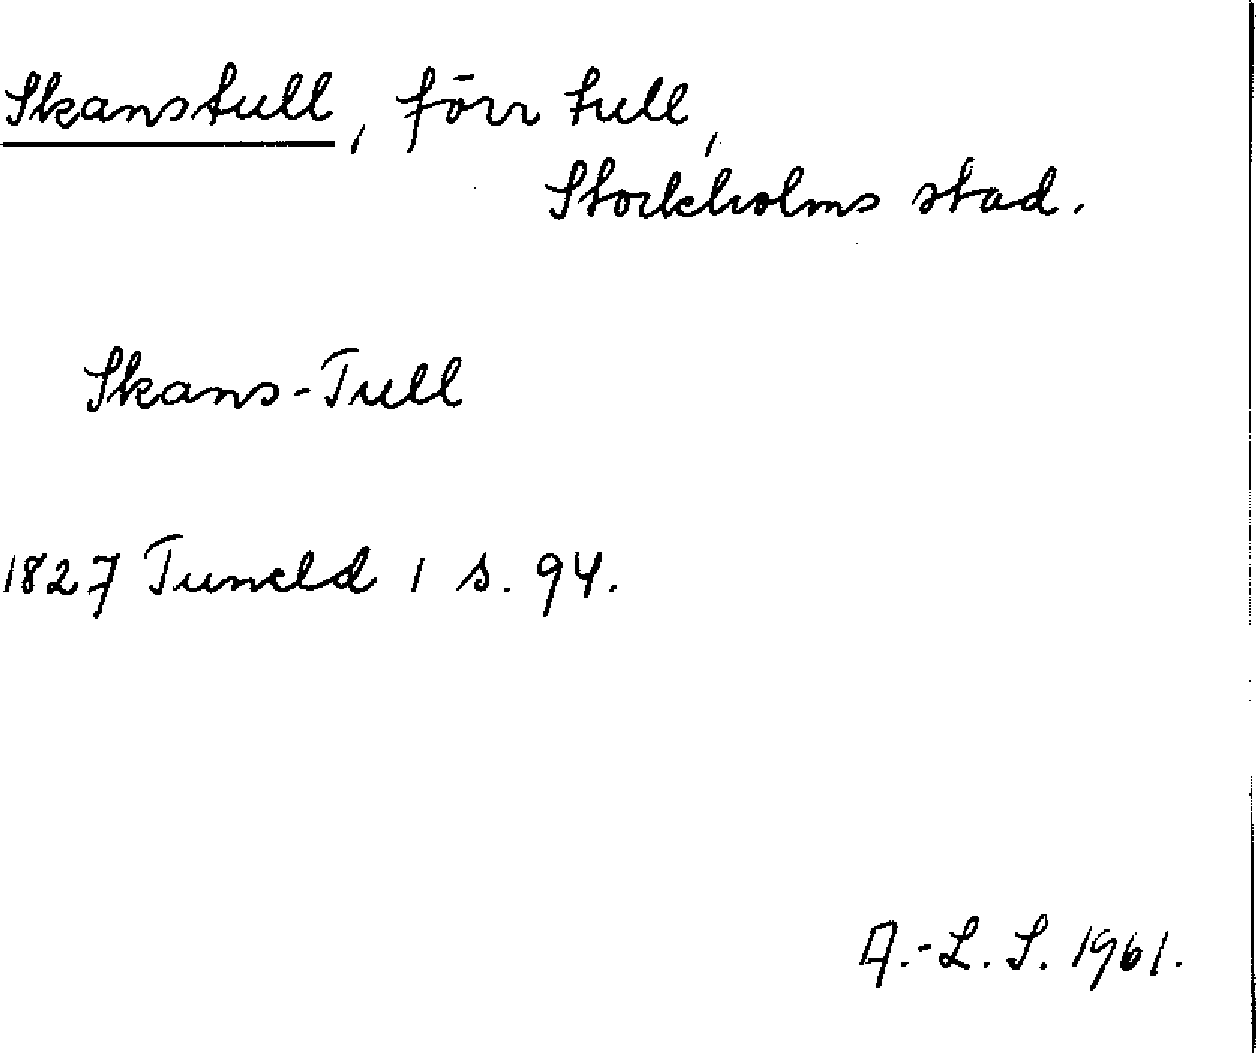 Skanstull, förr tull,
Stockholms stad.
Skans-Tull
1827 Tuneld 1 s. 94.
A.-L. S. 1961.